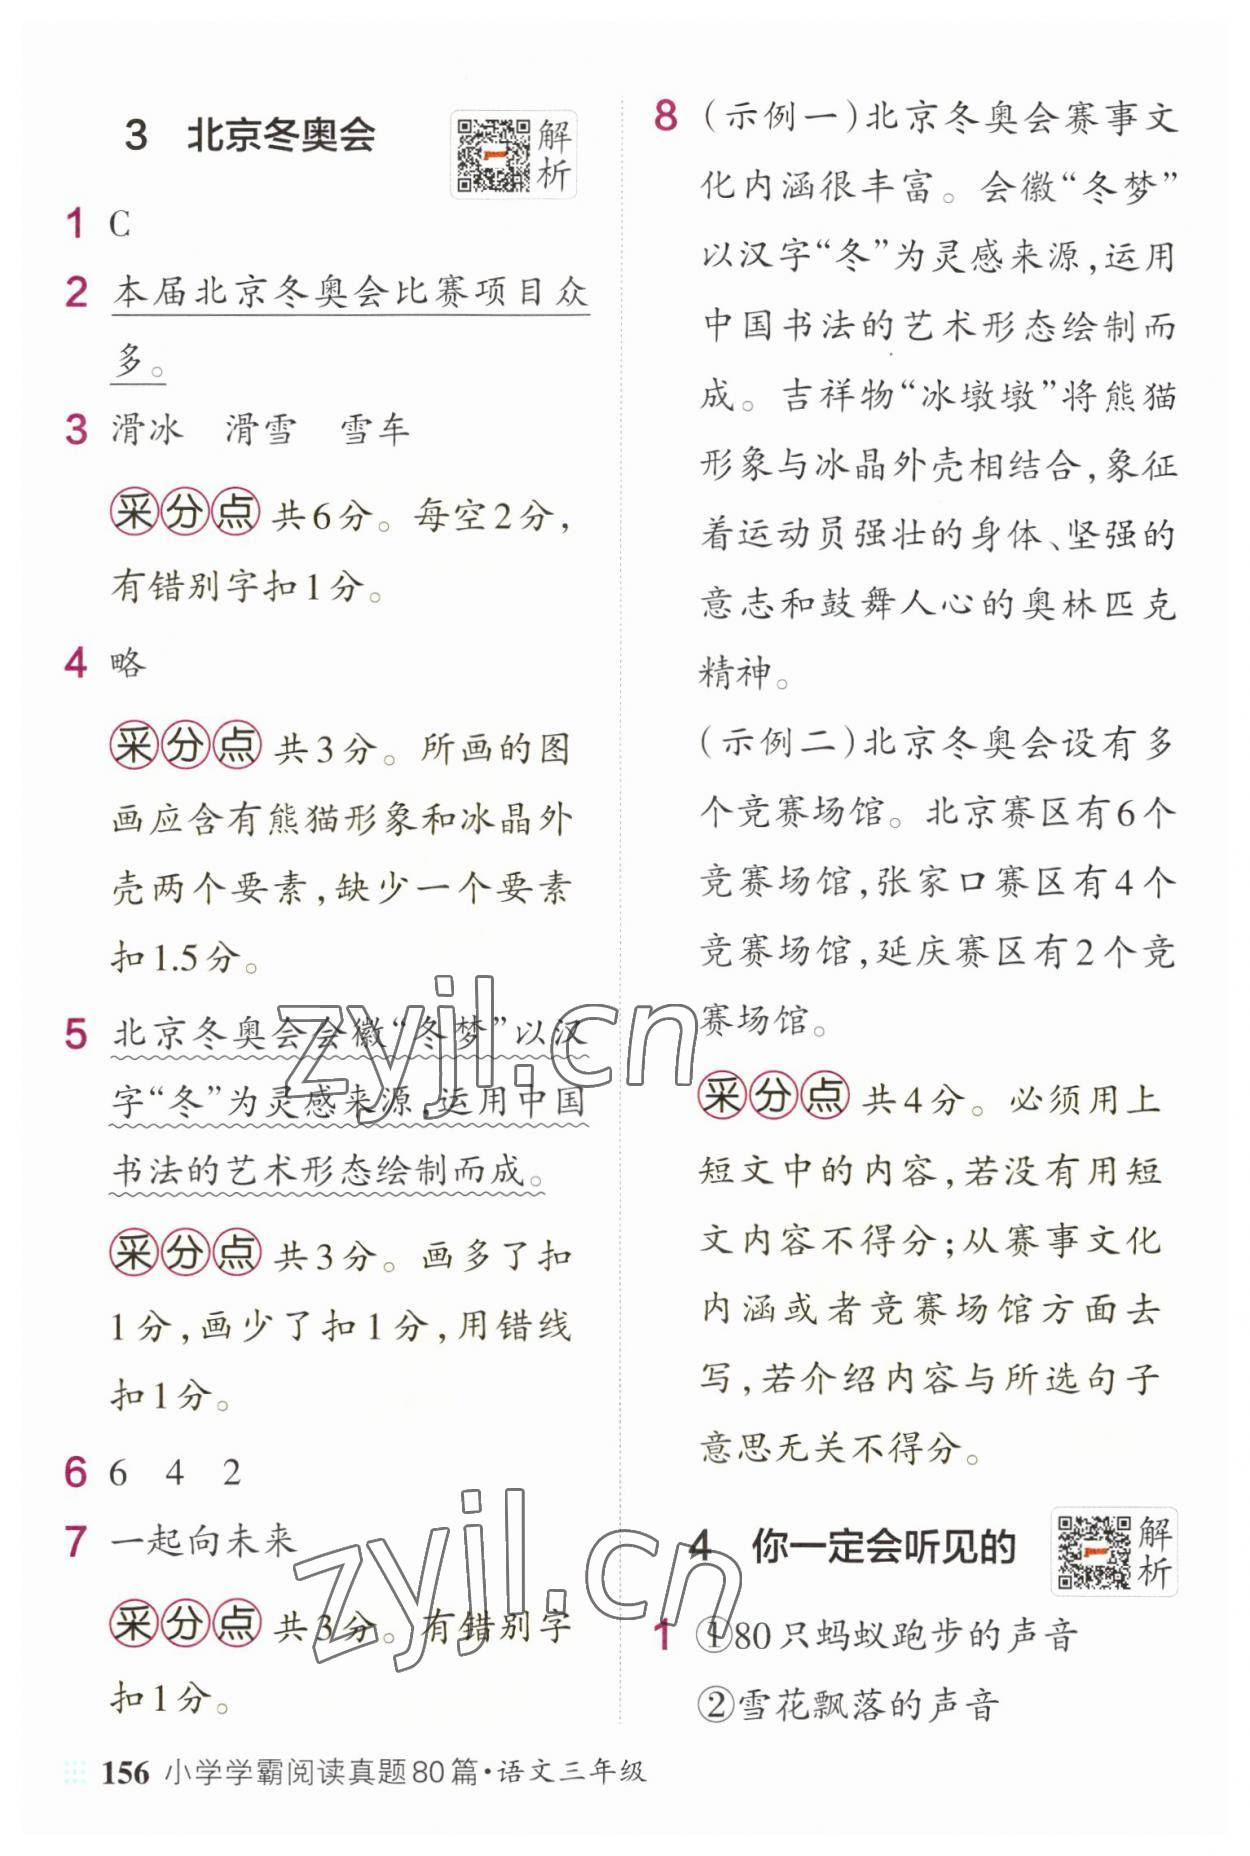 3 北京冬奥会
解析
1 C
2 本届北京冬奥会比赛项目众
多。
3 滑冰 滑雪 雪车
采分点 共6分。每空2分,
有错别字扣1分。
4 略
采分点 共3分。所画的图
画应含有熊猫形象和冰晶外
壳两个要素,缺少一个要素
扣1.5分。
5 北京冬奥会会徽“冬梦”以汉
字“冬”为灵感来源,运用中国
书法的艺术形态绘制而成。
采分点 共3分。画多了扣
1分,画少了扣1分,用错线
扣1分。
6 6 4 2
7 一起向未来
采分点 共3分。有错别字
扣1分。
8 (示例一)北京冬奥会赛事文
化内涵很丰富。会徽“冬梦”
以汉字“冬”为灵感来源,运用
中国书法的艺术形态绘制而
成。吉祥物“冰墩墩”将熊猫
形象与冰晶外壳相结合,象征
着运动员强壮的身体、坚强的
意志和鼓舞人心的奥林匹克
精神。
(示例二)北京冬奥会设有多
个竞赛场馆。北京赛区有6个
竞赛场馆,张家口赛区有4个
竞赛场馆,延庆赛区有2个竞
赛场馆。
采分点 共4分。必须用上
短文中的内容,若没有用短
文内容不得分;从赛事文化
内涵或者竞赛场馆方面去
写,若介绍内容与所选句子
意思无关不得分。
4 你一定会听见的
解析
1 ①80只蚂蚁跑步的声音
②雪花飘落的声音
156 小学学霸阅读真题80篇·语文三年级
zyjl.cn
zyjl.cn